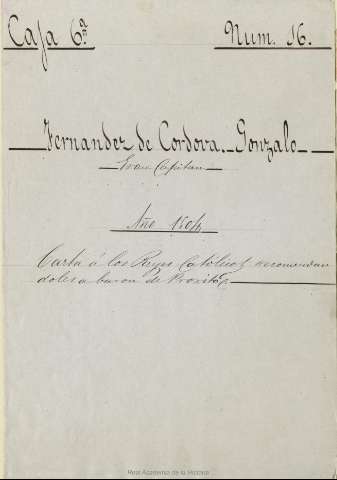 Caja 6ª Num. 16.
Fernandez de Cordova. Gonzalo
Gran Capitan
Año 1504
Carta á los Reyes Catolicos recomendan
doles a baron de
Real Academia de la Historia